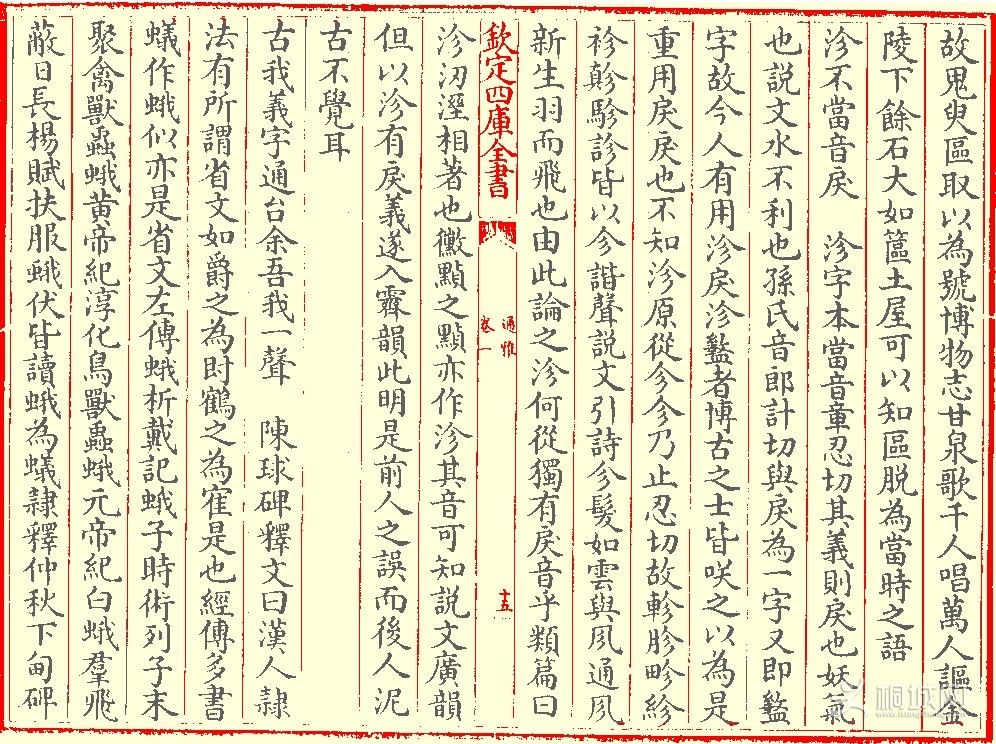 故鬼臾區取以為號博物志甘泉歌千人唱萬人謳金
陵下餘石大如簄土屋可以知區脱為當時之語
沴不當音戾 沴字本當音章忍切其義則戾也妖氣
也説文水不利也孫氏音郎計切與戾為一字又即盭
字故今人有用沴戾沴盭者博古之士皆咲之以為是
重用戾戾也不知沴原從㐱㐱乃止忍切故軫胗畛紾
袗㐱駗診皆以㐱諧聲説文引詩㐱髮如雲與夙通夙
新生羽而飛也由此論之沴何從獨有戾音乎類篇曰
欽定四庫全書
通雅
卷一
十五
沴沕溼相著也黴㸃之㸃亦作沴其音可知説文廣韻
但以沴有戾義遂入霽韻此明是前人之誤而後人泥
古不覺耳
古我義字通台余吾我一聲 陳球碑釋文曰漢人隷
法有所謂省文如爵之為㝵鶴之為寉是也經傳多書
蟻作蛾似亦是省文左傳蛾析戴記蛾子時術列子末
聚禽獸蟲蛾黄帝紀淳化鳥獸蟲蛾元帝紀白蛾羣飛
蔽日長楊賦扶服蛾伏皆讀蛾為蟻隷釋仲秋下旬碑
桐城网